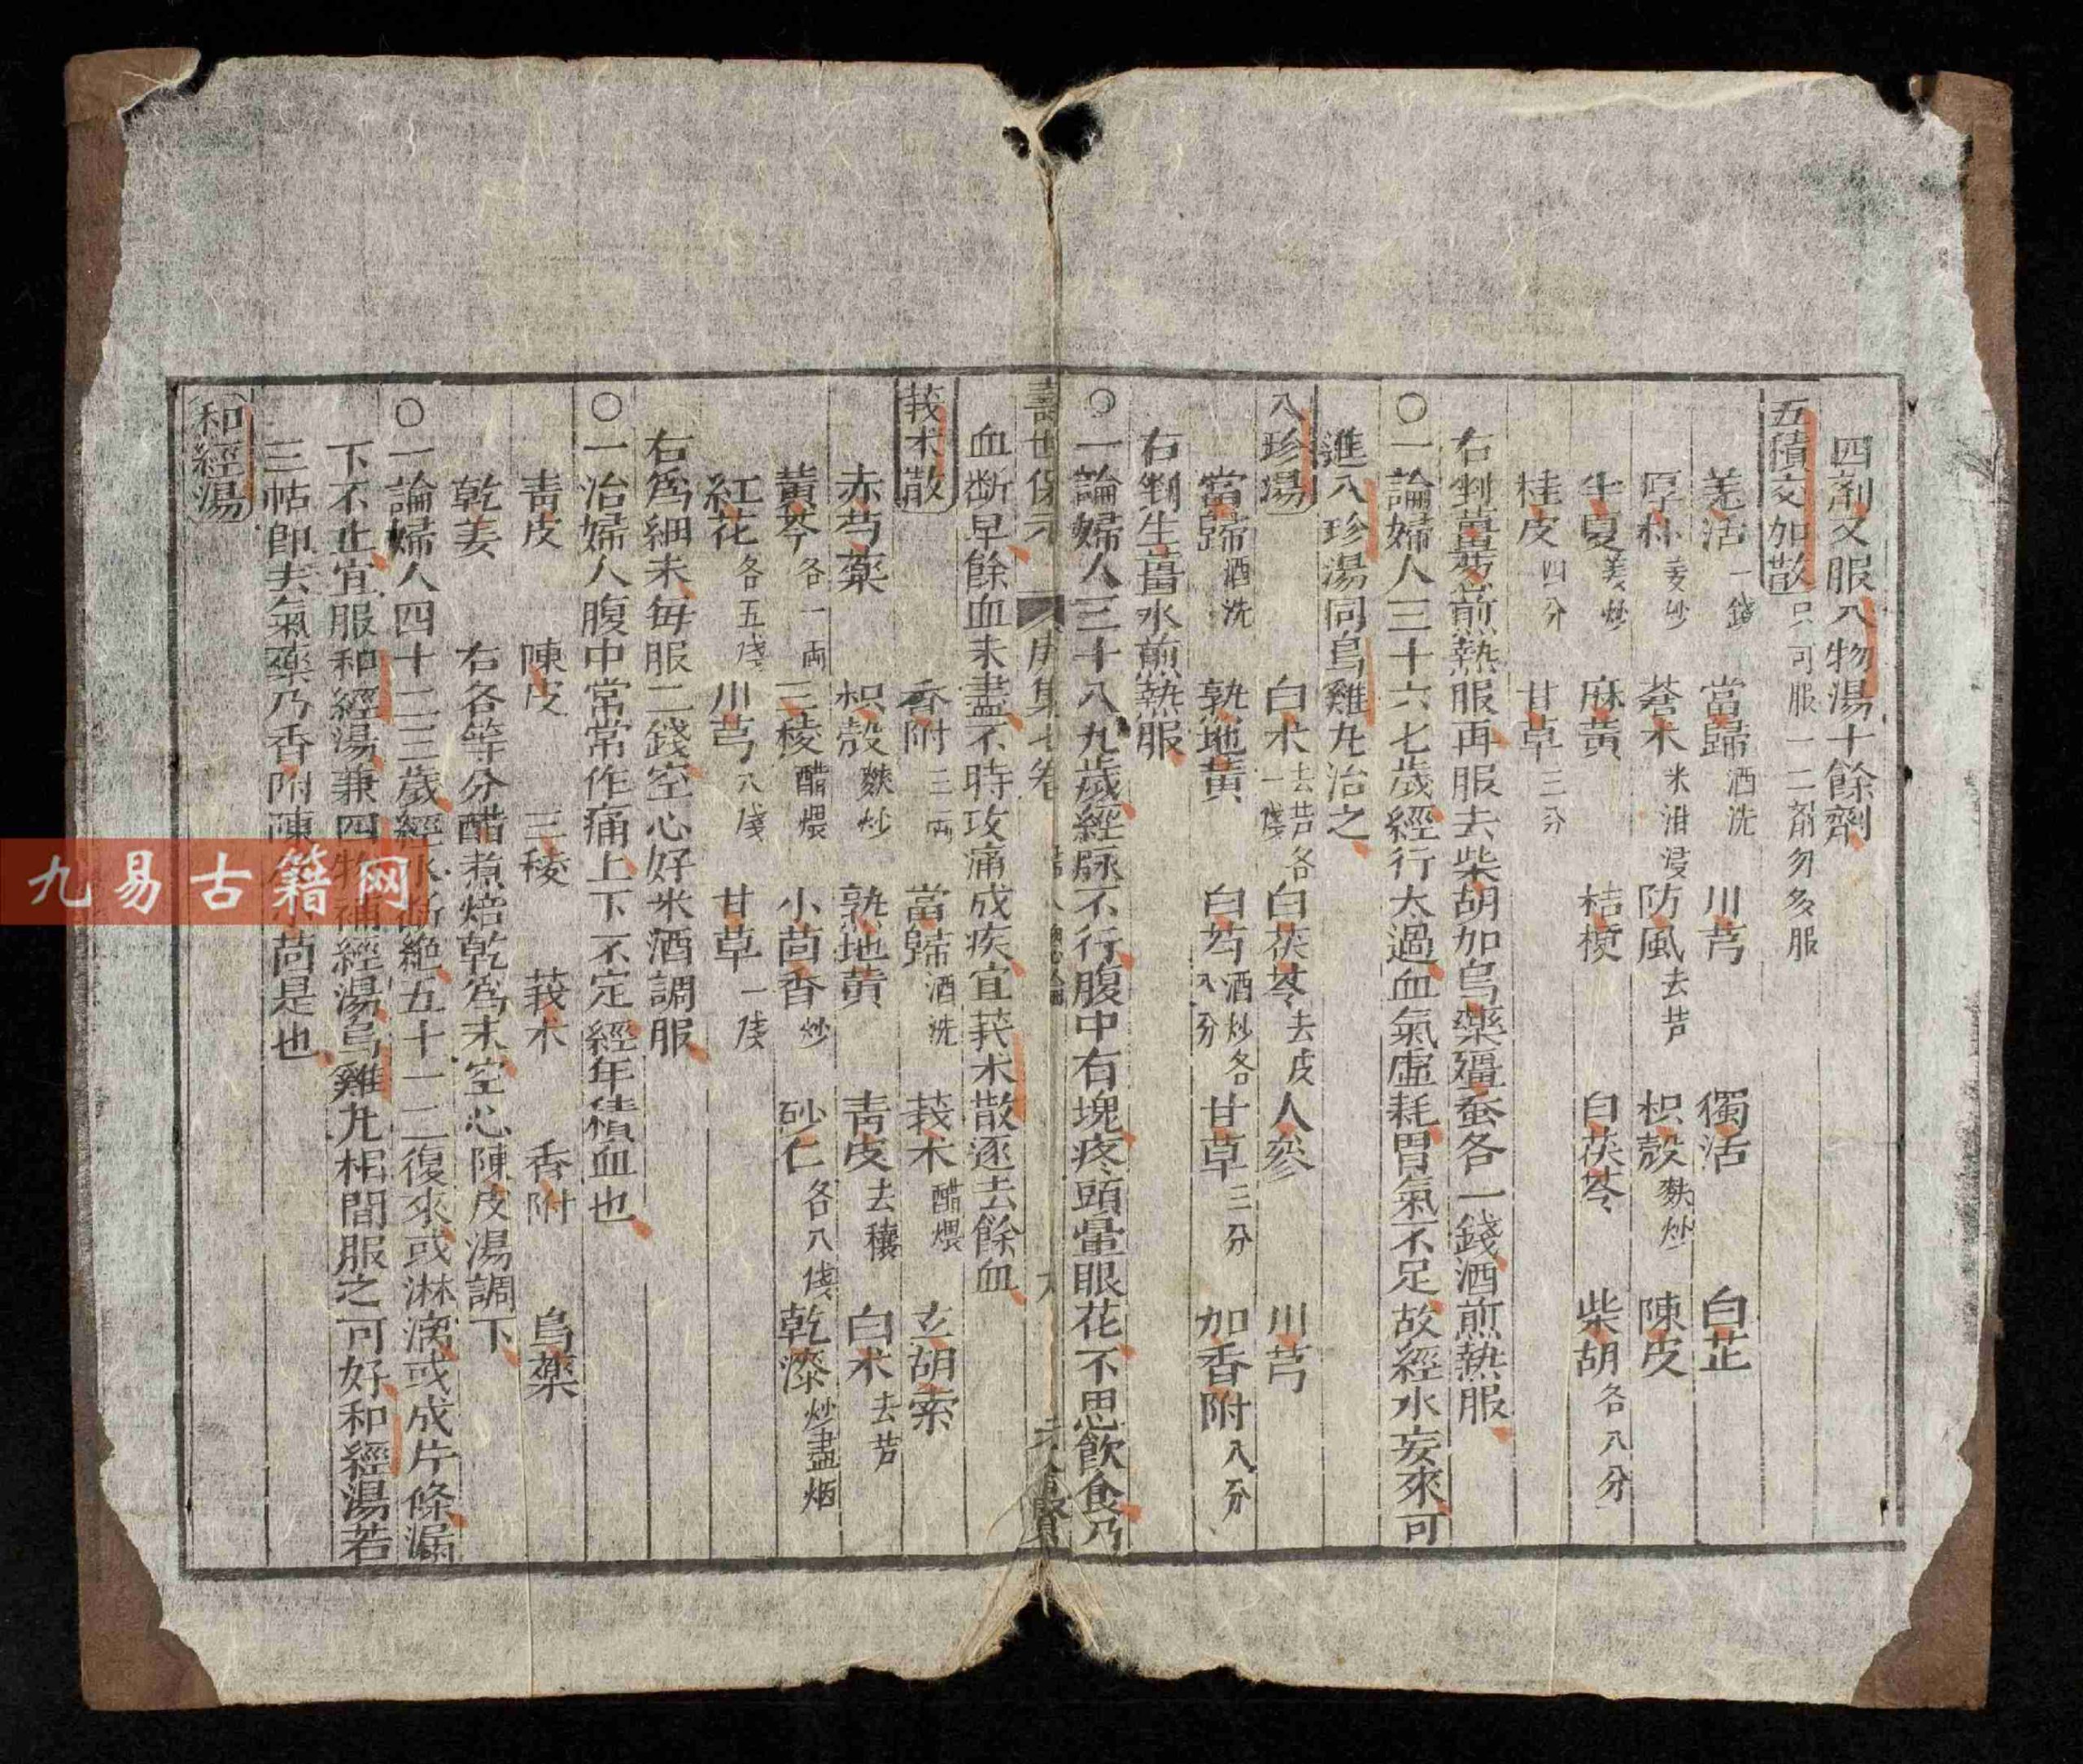 四劑又服八物湯十餘劑
五積交加散只可服一二剤勿多服
羗活一錢 當歸酒洗 川芎 獨活 白芷
厚朴姜炒 蒼朮米泔浸 防風去芦 枳殼麩炒 陳皮
半夏姜炒 麻黃 桔梗 白茯苓 柴胡各八分
桂皮四分 甘草三分
右剉薑煎熱服再服去柴胡加烏藥殭蚕各一錢酒煎熱服
○一論婦人三十六七歲經行太過血氣虛耗胃氣不足故經水妄來可
進八珍湯同烏雞丸治之
八珍湯 白朮去芦各一戔 白茯苓去皮 人參 川芎
當歸酒洗 熟地黃 白芍酒炒各八分 甘草三分 加香附八分
右剉生薑水煎熱服
○一論婦人三十八九歲經脉不行腹中有塊疼頭暈眼花不思飲食乃
壽世保元 庚集七卷 六
血断早餘血未盡不時攻痛成疾宜莪朮散逐去餘血
莪朮散 香附三両 當歸酒洗 莪朮醋煨 玄胡索
赤芍藥 枳殼麩炒 熟地黃 青皮去穰 白朮去芦
黃芩各一両 三稜醋煨 小茴香炒 砂仁各八戔 乾漆炒盡烟
紅花各五戔 川芎八戔 甘草一戔
右爲細末每服二錢空心好米酒調服
○一治婦人腹中常常作痛上下不定經年積血也
青皮 陳皮 三稜 莪朮 香附 烏藥
乾姜 右各等分醋煮焙乾爲末空心陳皮湯調下
○一論婦人四十二三歲經水断絕五十一二復來或淋漓或成片條漏
下不止宜服和經湯兼四物補經湯烏雞丸相間服之可好和經湯若
三帖即去氣藥乃香附陳皮小茴是也
和經湯
九易古籍网